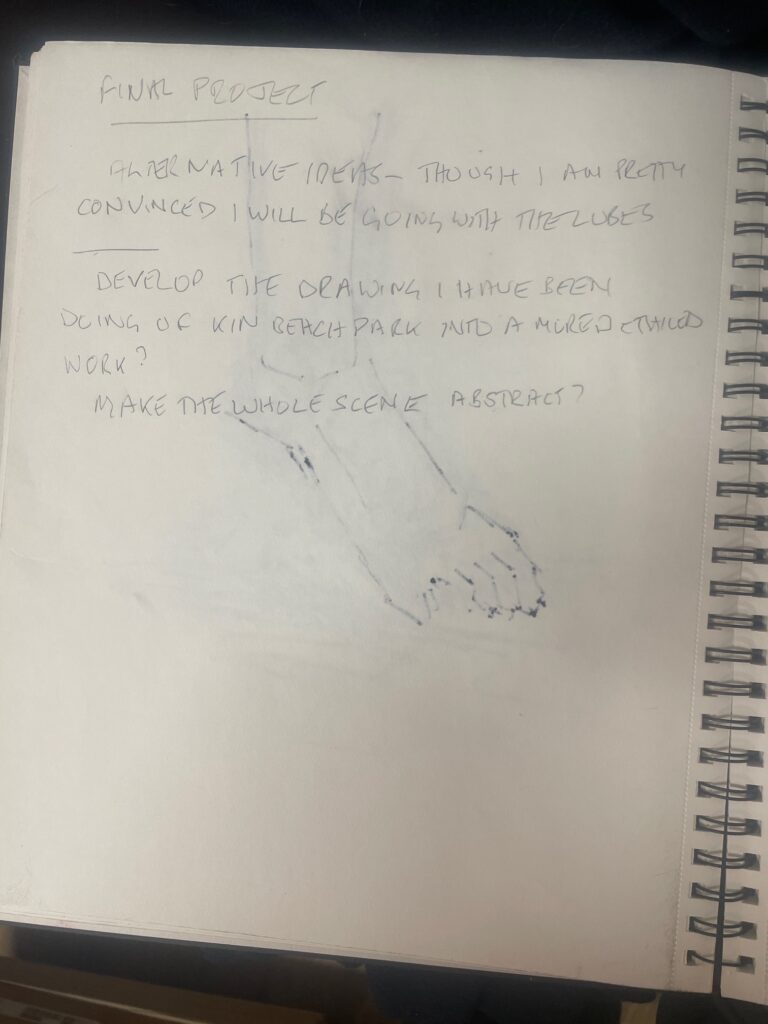 FINAL PROJECT
ALTERNATIVE IDEAS - THOUGH I AM PRETTY
CONVINCED I WILL BE GOING WITH THE
DEVELOP THE DRAWING I HAVE BEEN
DOING OF KIN BEACH PARK INTO A MORE DETAILED
WORK?
MAKE THE WHOLE SCENE ABSTRACT?